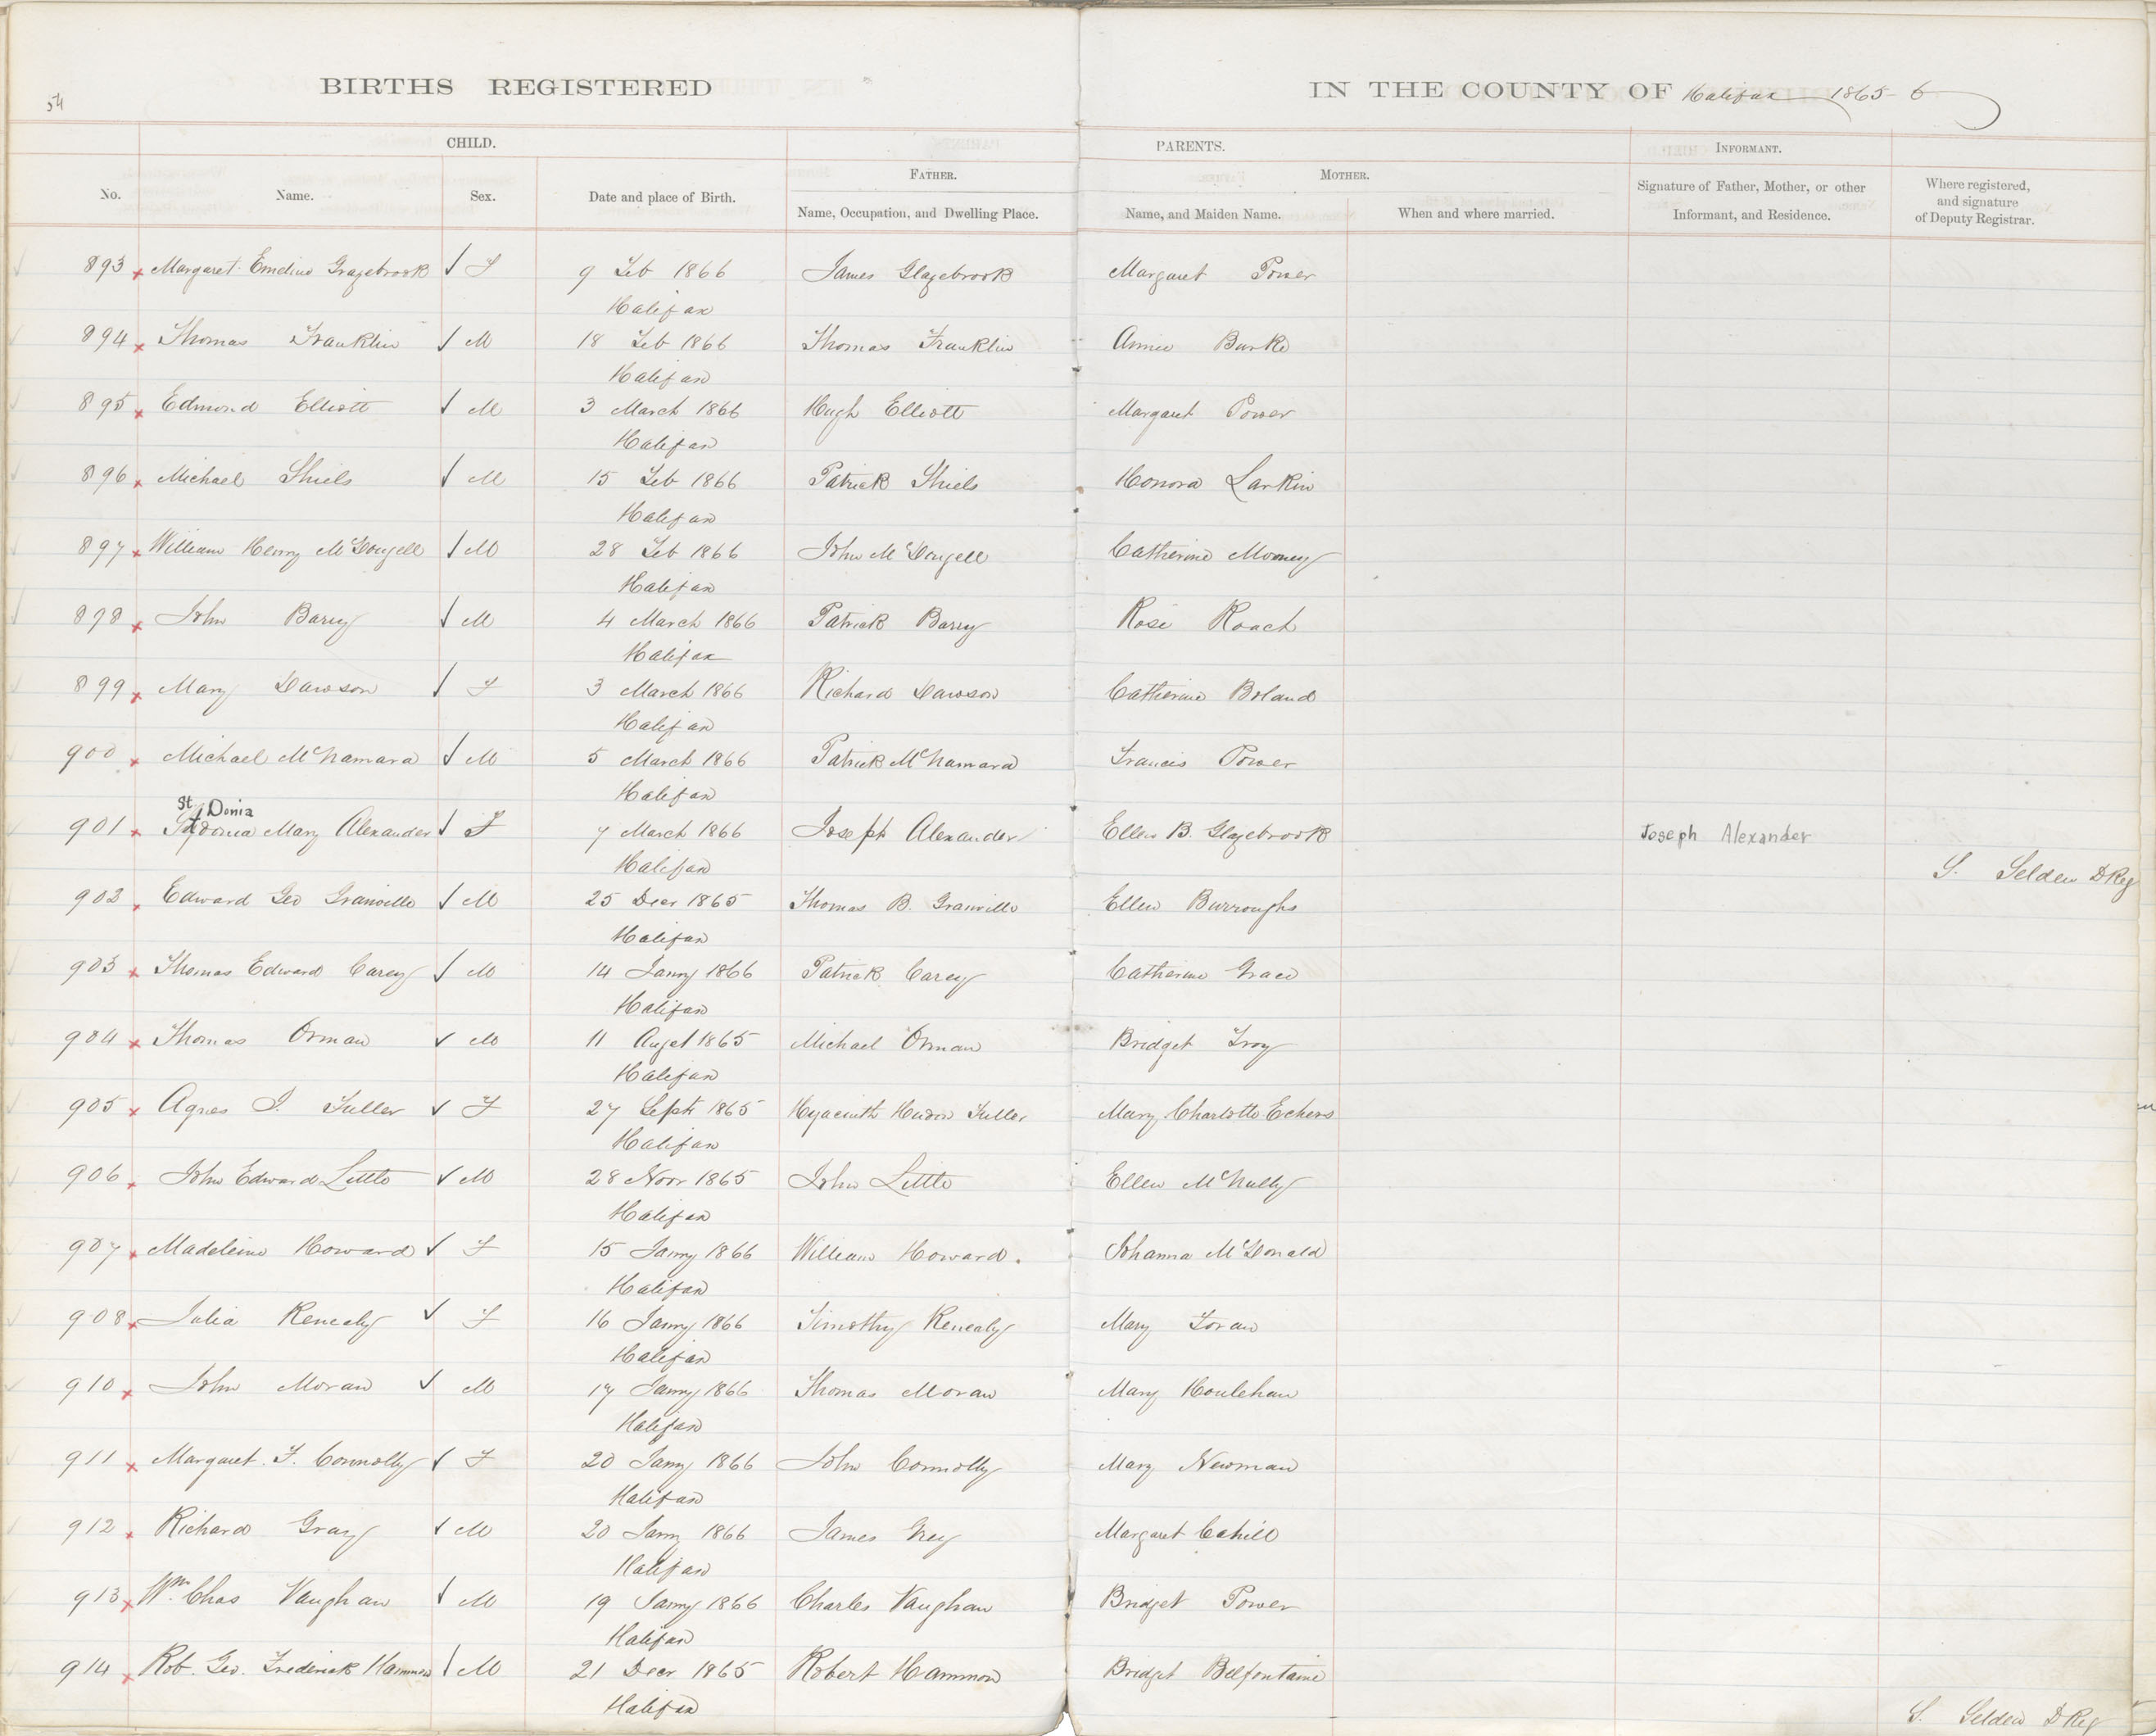 54
BIRTHS REGISTERED IN THE COUNTY OF Halifax 1865-6
CHILD. PARENTS. INFORMANT.
FATHER. MOTHER.
No. Name. Sex. Date and place of Birth. Name, Occupation, and Dwelling Place. Name, and Maiden Name. When and where married. Signature of Father, Mother, or other Informant, and Residence. Where registered, and signature of Deputy Registrar.
893 Margaret Emeline Grazebrook F 9 Feb 1866 James Glazebrook Margaret Power
Halifax
894 Thomas Franklin M 18 Feb 1866 Thomas Franklin Annie Burke
Halifax
895 Edmond Elliott M 3 March 1866 Hugh Elliott Margaret Power
Halifax
896 Michael Shiels M 15 Feb 1866 Patrick Shiels Honora Larkin
Halifax
897 William Henry McDougell M 28 Feb 1866 John McDougell Catherine Mooney
Halifax
898 John Barry M 4 March 1866 Patrick Barry Rose Roach
Halifax
899 Mary Dawson F 3 March 1866 Richard Dawson Catherine Boland
Halifax
900 Michael McNamara M 5 March 1866 Patrick McNamara Francis Power
Halifax
St. Donia
901 Mary Alexander F 7 March 1866 Joseph Alexander Ellen B. Glazebrook Joseph Alexander
Halifax S. Selden D Reg
902 Edward Geo Granville M 25 Decr 1865 Thomas B. Granville Ellen Burroughs
Halifax
903 Thomas Edward Carey M 14 Janry 1866 Patrick Carey Catherine Grace
Halifax
904 Thomas Orman M 11 Augst 1865 Michael Orman Bridget Troy
Halifax
905 Agnes J. Fuller F 27 Sept 1865 Hyacinth Hudon Fuller Mary Charlotte Echers
Halifax
906 John Edward Little M 28 Novr 1865 John Little Ellen McNulty
Halifax
907 Madeleine Howard F 15 Janry 1866 William Howard. Johanna McDonald
Halifax
908 Julia Renealy F 16 Janry 1866 Timothy Renealy Mary Foran
Halifax
910 John Moran M 17 Janry 1866 Thomas Moran Mary Houlehan
Halifax
911 Margaret F. Connolly F 20 Janry 1866 John Connolly Mary Newman
Halifax
912 Richard Gray M 20 Janry 1866 James Grey Margaret Cahill
Halifax
913 Wm. Chas Vaughan M 19 Janry 1866 Charles Vaughan Bridget Power
Halifax
914 Rob. Geo. Frederick Hammon M 21 Decr 1865 Robert Hammon Bridget Belfontaine
Halifax S. Selden D Reg